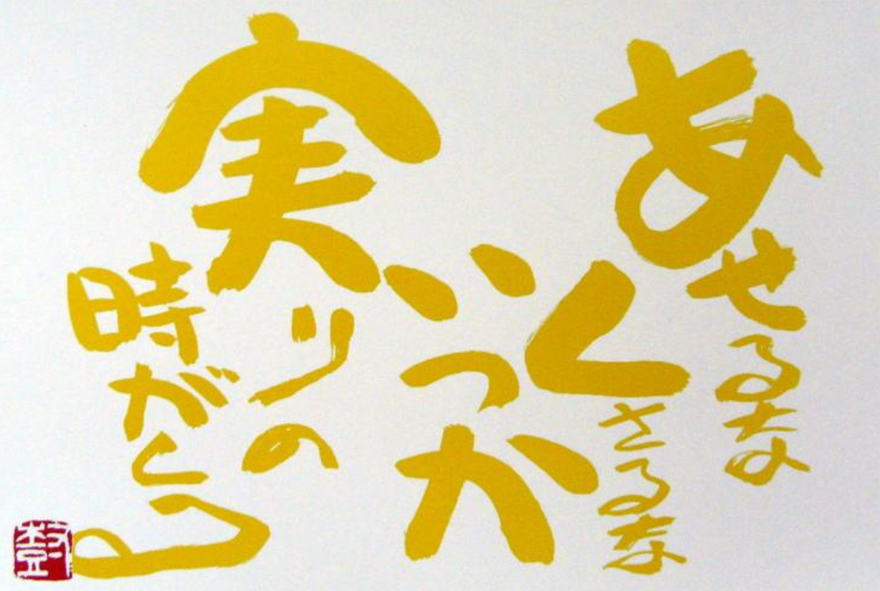 あせるな
くさるな
いつか
実りの
時がくる